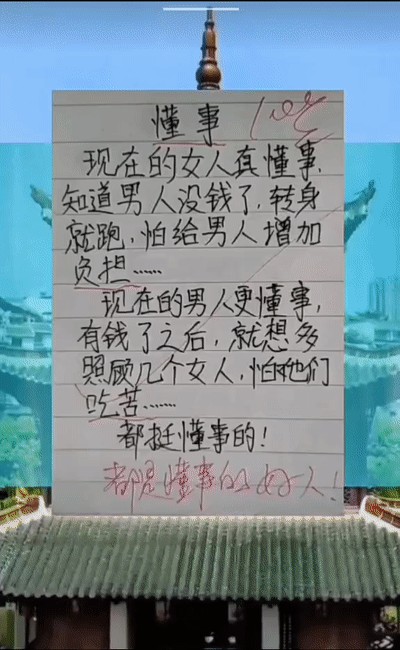 懂事 100
现在的女人真懂事,
知道男人没钱了,转身
就跑,怕给男人增加
负担……
现在的男人更懂事,
有钱了之后,就想多
照顾几个女人,怕她们
吃苦……
都挺懂事的!
都是懂事的好人!